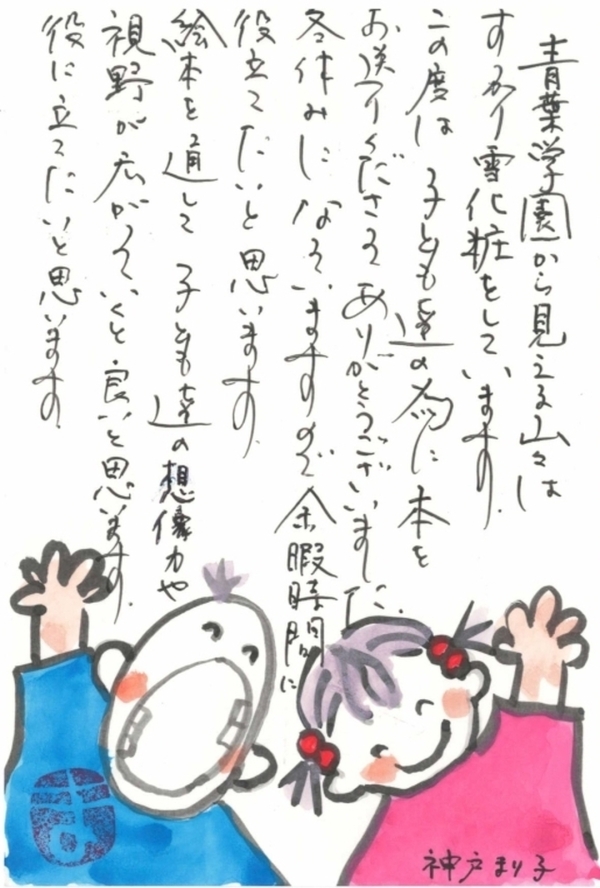 青葉学園から見える山々は
すっかり雪化粧をしています。
この度は子ども達の為に本を
お送りくださってありがとうございました。
冬休みになっていますので余暇時間に
役立てたいと思います。
絵本を通して子ども達の想像力や
視野が広がっていくと良いと思います。
役に立てたいと思います。
神戸まり子